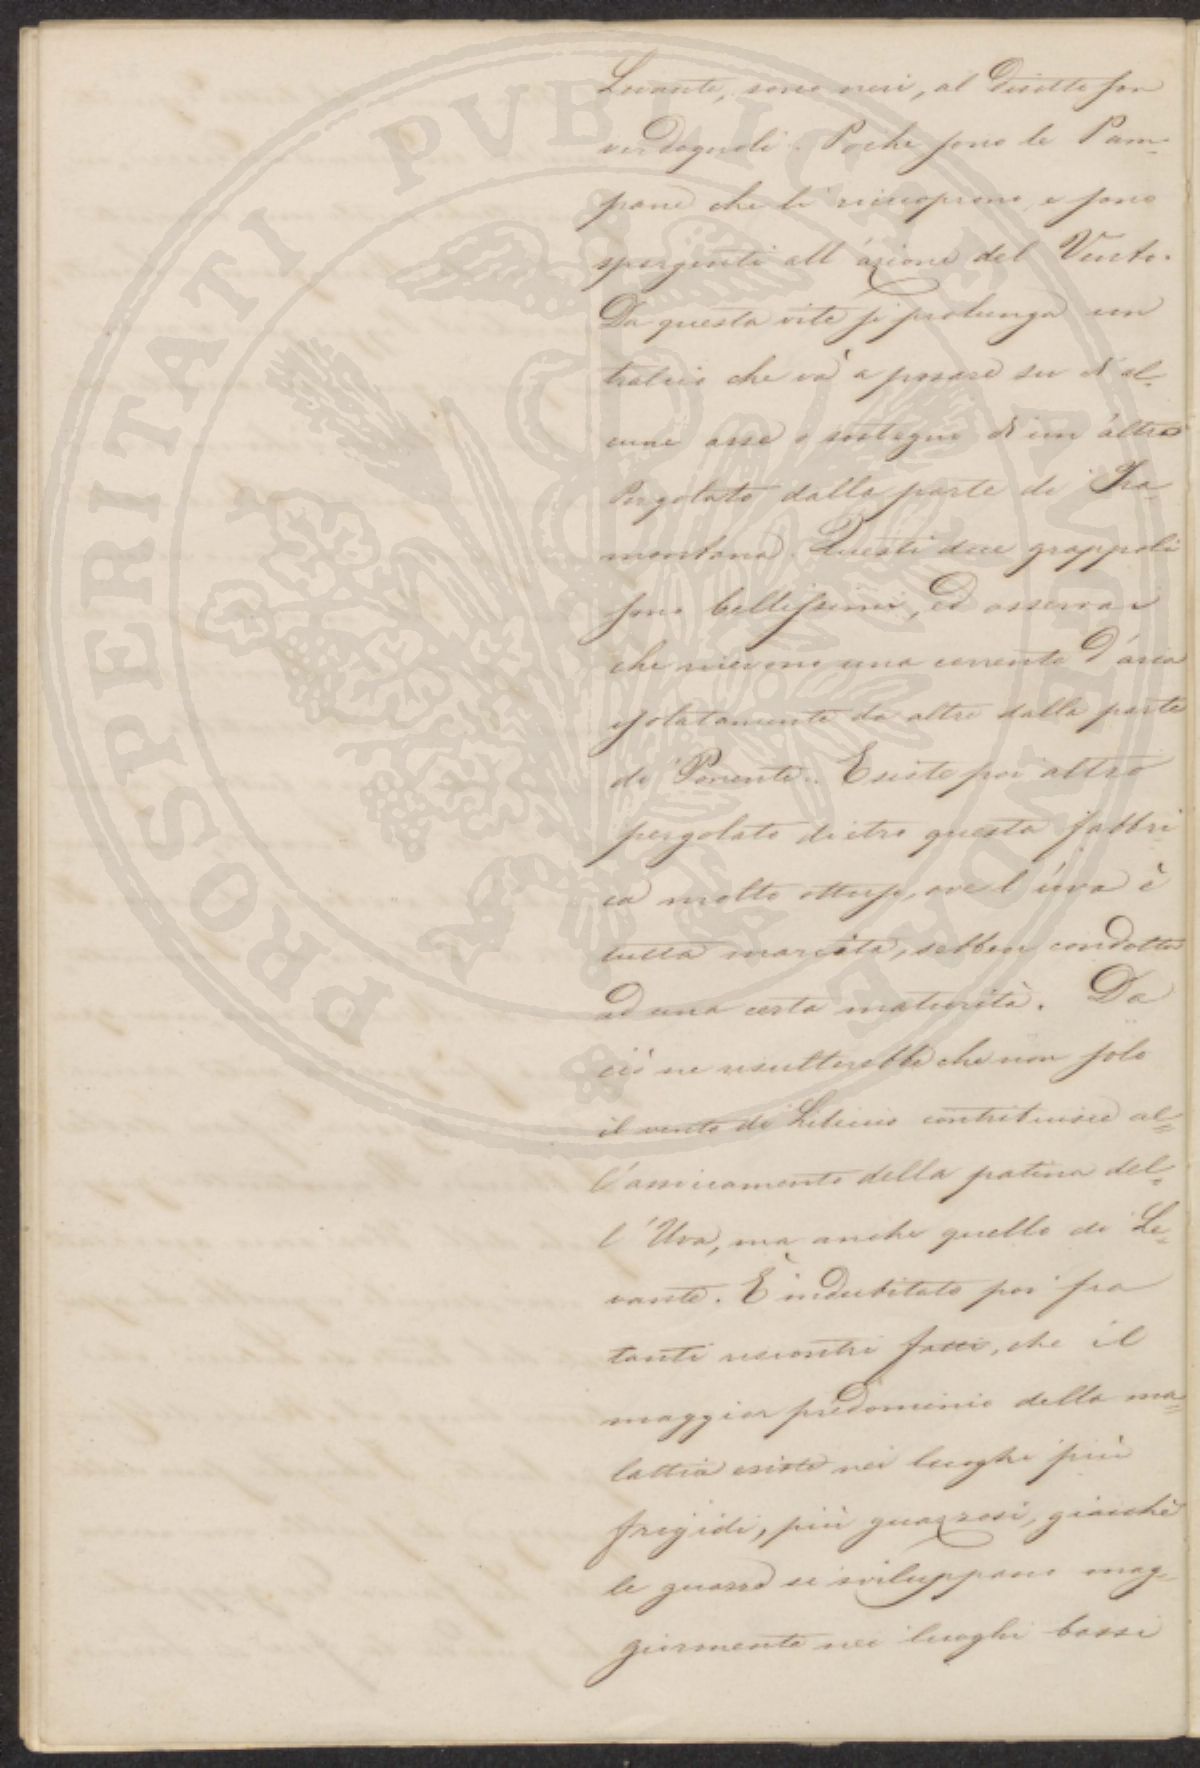 Levante, sono neri, al disotto son
verdognoli. Poche sono le Pam-
pane che li ricuoprono, e sono
spargenti all'azione del Vento.
Da questa vite si prolunga un
tralcio che và a posare su d'al-
cune asse o sostegni di un'altro
Pergolato dalla parte di Tra-
montana. Questi due grappoli
sono bellissimi, ed osservai
che ricevono una corrente d'aria
isolatamente da altri dalla parte
di Ponente. Esiste poi altro
pergolato dietro questa fabbri
ca molto ottuso, ove l'uva è
tutta marcita, sebben condotta
ad una certa maturità. Da
ciò ne risulterebbe che non solo
il vento di Libicio contribuisce al=
l'assicamento della patina del=
l'Uva, ma anche quello di Le=
vante. È indubitato poi fra
tanti riscontri fatti, che il
maggior predominio della ma=
lattia esiste nei luoghi più
frigidi, più guazzosi, giacchè
le guazze si sviluppano mag-
giormente nei luoghi bassi
PROSPERITATI PUBLICAE AUGENDAE